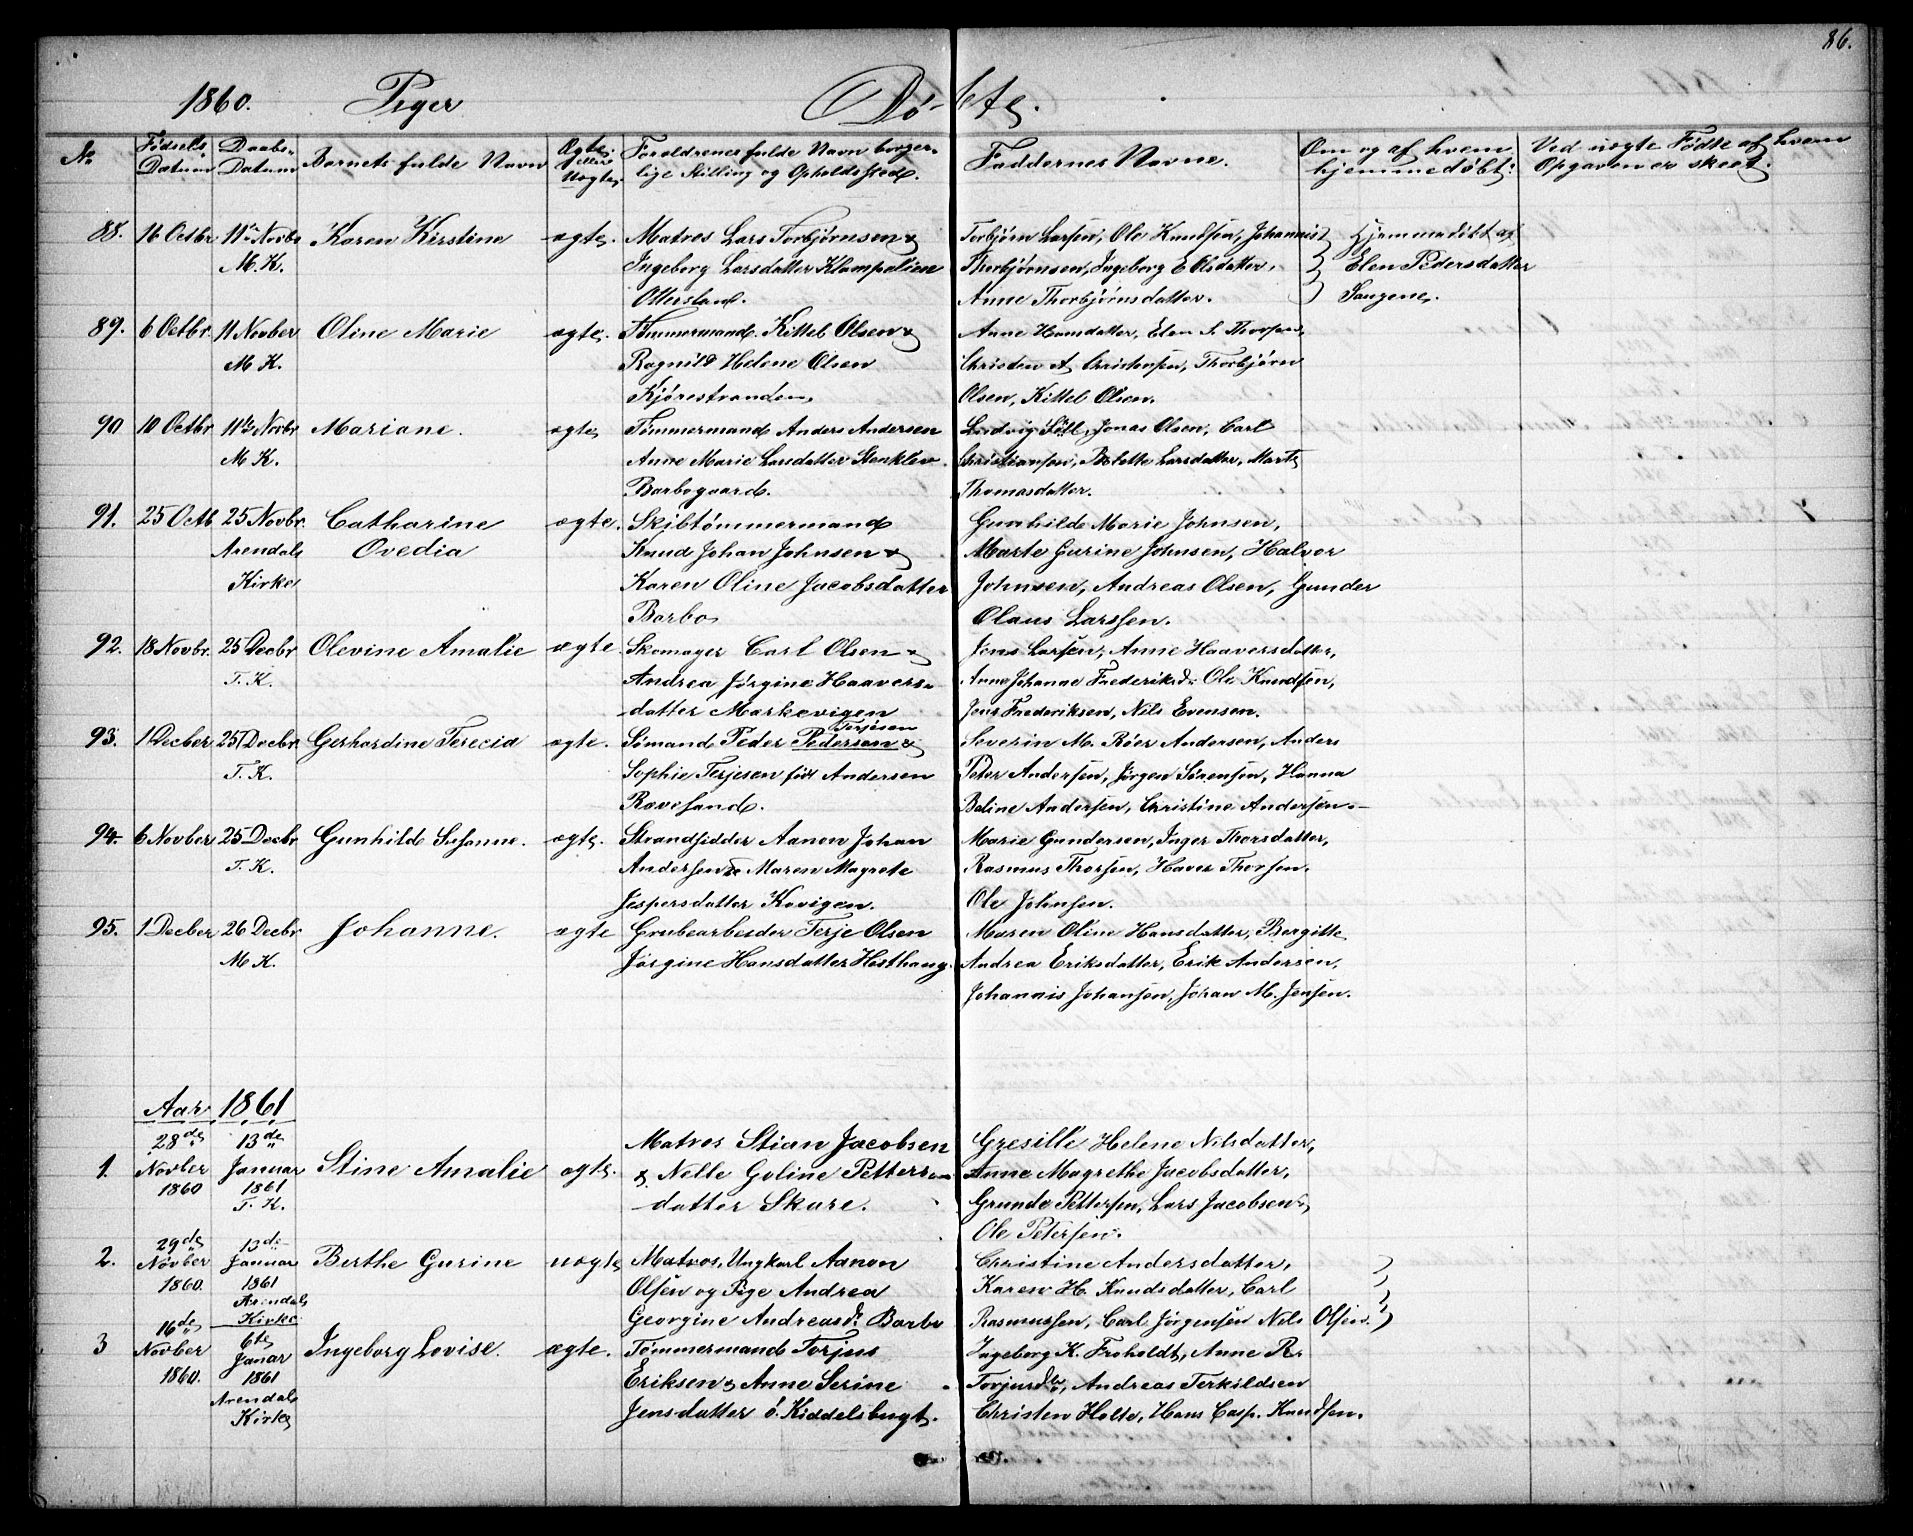 86.
1860. Piger Døbte.
No Fødsels Datum Daabs- Datum Barnets fulde Navn Ægte eller Uægte Foreldrenes fulde Navn borger- lige Stilling og Opholdssted. Faddernes Navne. Om og af hvem hjemmedøbt: Ved uægte Fødte af hvem Opgaven er skeet.
88. 16 Octbr 11te Novbr Karen Kirstine ægte. Matros Lars Torbjørnsen & Torbjørn Larsen, Ole Knudsen, Johannis Hjemmedøbt af
M. K. Ingeborg Larsdatter Thorbjørnsen, Ingeborg E Olsdatter, Elen Pedersdatter
Ottersland. Anne Thorbjørnsdatter. Saugene.
89. 6 Octbr. 11 Novber Oline Marie ægte. Tømmermand Kittel Olsen & Anne Hansdatter, Elen S. Thorsen,
M. K. Ragnild Helene Olsen Christen A Christensen, Thorbjørn
Kjørestranden, Olsen, Kittel Olsen.
90 10 Octbr 11te Novbr Mariane. ægte Tømmermand Anders Andersen Ludvig Jonas Olsen, Carl
M. K. Anne Marie Larsdatter Stenklev Christiansen, Larsdatter, Marte
Barbogaard. Thomasdatter.
91. 25 Octb 25 Novbr. Catharine ægte. Skibtømmermand Gunhilde Marie Johnsen,
Arendals Ovedia Knud Johan Johnsen & Marte Gurine Johnsen, Halvor
Kirke Karen Oline Jacobsdatter Johnsen, Andreas Olsen, Gunder
Barbo Olaus Larssen.
92. 18 Novbr. 25 Decbr Olevine Amalie ægte. Skomager Carl Olsen & Jens Larsen, Anne Haaversdatter,
T. K. Andrea Jørgine Haavers- Anne Johanne Frederiksd. Ole Knudsen,
datter Markevigen Jens Frederiksen, Nils Evensen.
Terjesen
93. 1 Decber 25 Decbr. Gerhardine Terecia ægte. Sømand Peder Pedersen & Severin M. Röer Andersen, Anders
T. K. Sophie Terjesen født Andersen Peter Andersen, Jørgen Sørensen, Hanna
Rævesand. Beline Andersen, Christine Andersen.
94. 6 Novber 25 Decbr Gunhild Susanne. ægte. Strandsidder Aanon Johan Marie Gundersen, Inger Thorsdatter,
T. K. Andersen & Maren Magrete Rasmus Thorsen, Haver Thorsen.
Jespersdatter Kovigen. Ole Johnsen.
95. 1 Decber 26 Decbr Johanne. ægte Grubearbeider Terje Olsen Maren Oline Hansdatter, Bergitte
M. K. Jørgine Hansdatter Hesthaug. Andrea Eriksdatter, Erik Andersen,
Johannis Johansen, Johan M. Jensen.
Aar 1861
28de 13de Matros Stian Jacobsen Gresille Helene Nilsdatter,
1. Novber Januar Stine Amalie ægte. & Nelle Goline Petters- Anne Magrethe Jacobsdatter,
1860 1861 datter Skare. Grunde Pettersen, Lars Jacobsen,
T. K. Ole Petersen.
29de 13de
2. Novber Januar Berthe Gurine uægte Matros, Ungkarl Aanon Christine Andersdatter,
1860. 1861 Olsen og Pige Andrea Karen H. Knudsdatter, Carl
Arendals Kirke Georgine Andreasdr. Barbo Rasmussen, Carl Jørgensen Nils Olsen.
16de 6te
3 Novber Januar Ingeborg Lovise. ægte. Tømmermand Torjus Ingeborg K. Froholdt, Anne R.
1860. 1861 Eriksen & Anne Serine Torjusdtr, Andreas Terkildsen
Arendals Kirke Jensdatter ó. Kiddelsbugt. Christen Holte, Hans Casp. Knudsen.